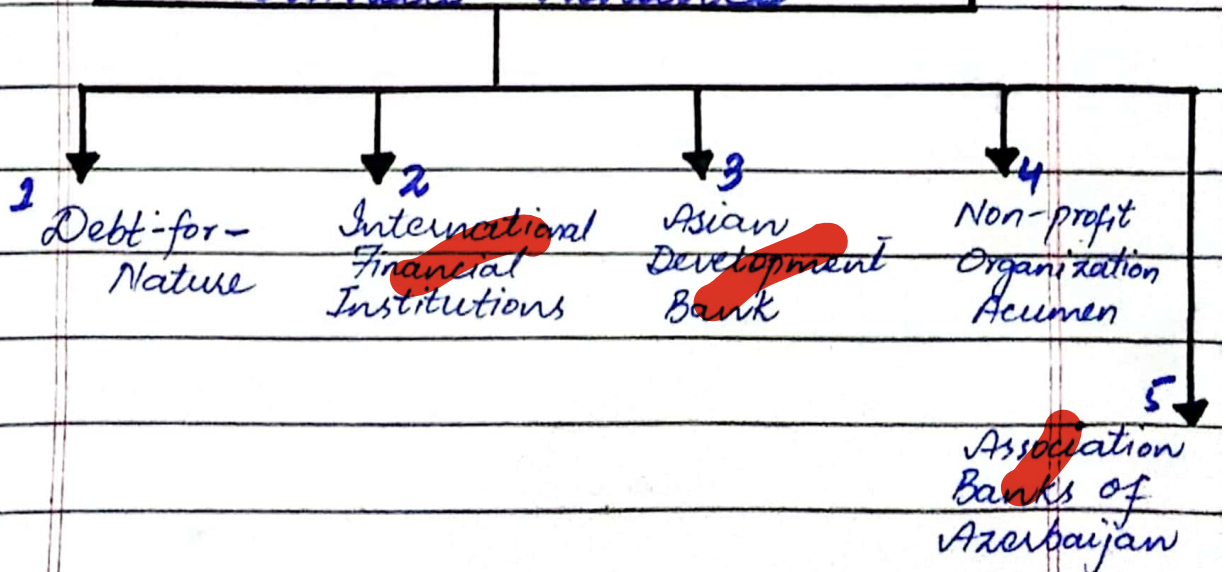 1
Debt-for-
Nature
2
International
Financial
Institutions
3
Asian
Development
Bank
4
Non-profit
Organization
Acumen
5
Association
Banks of
Azerbaijan